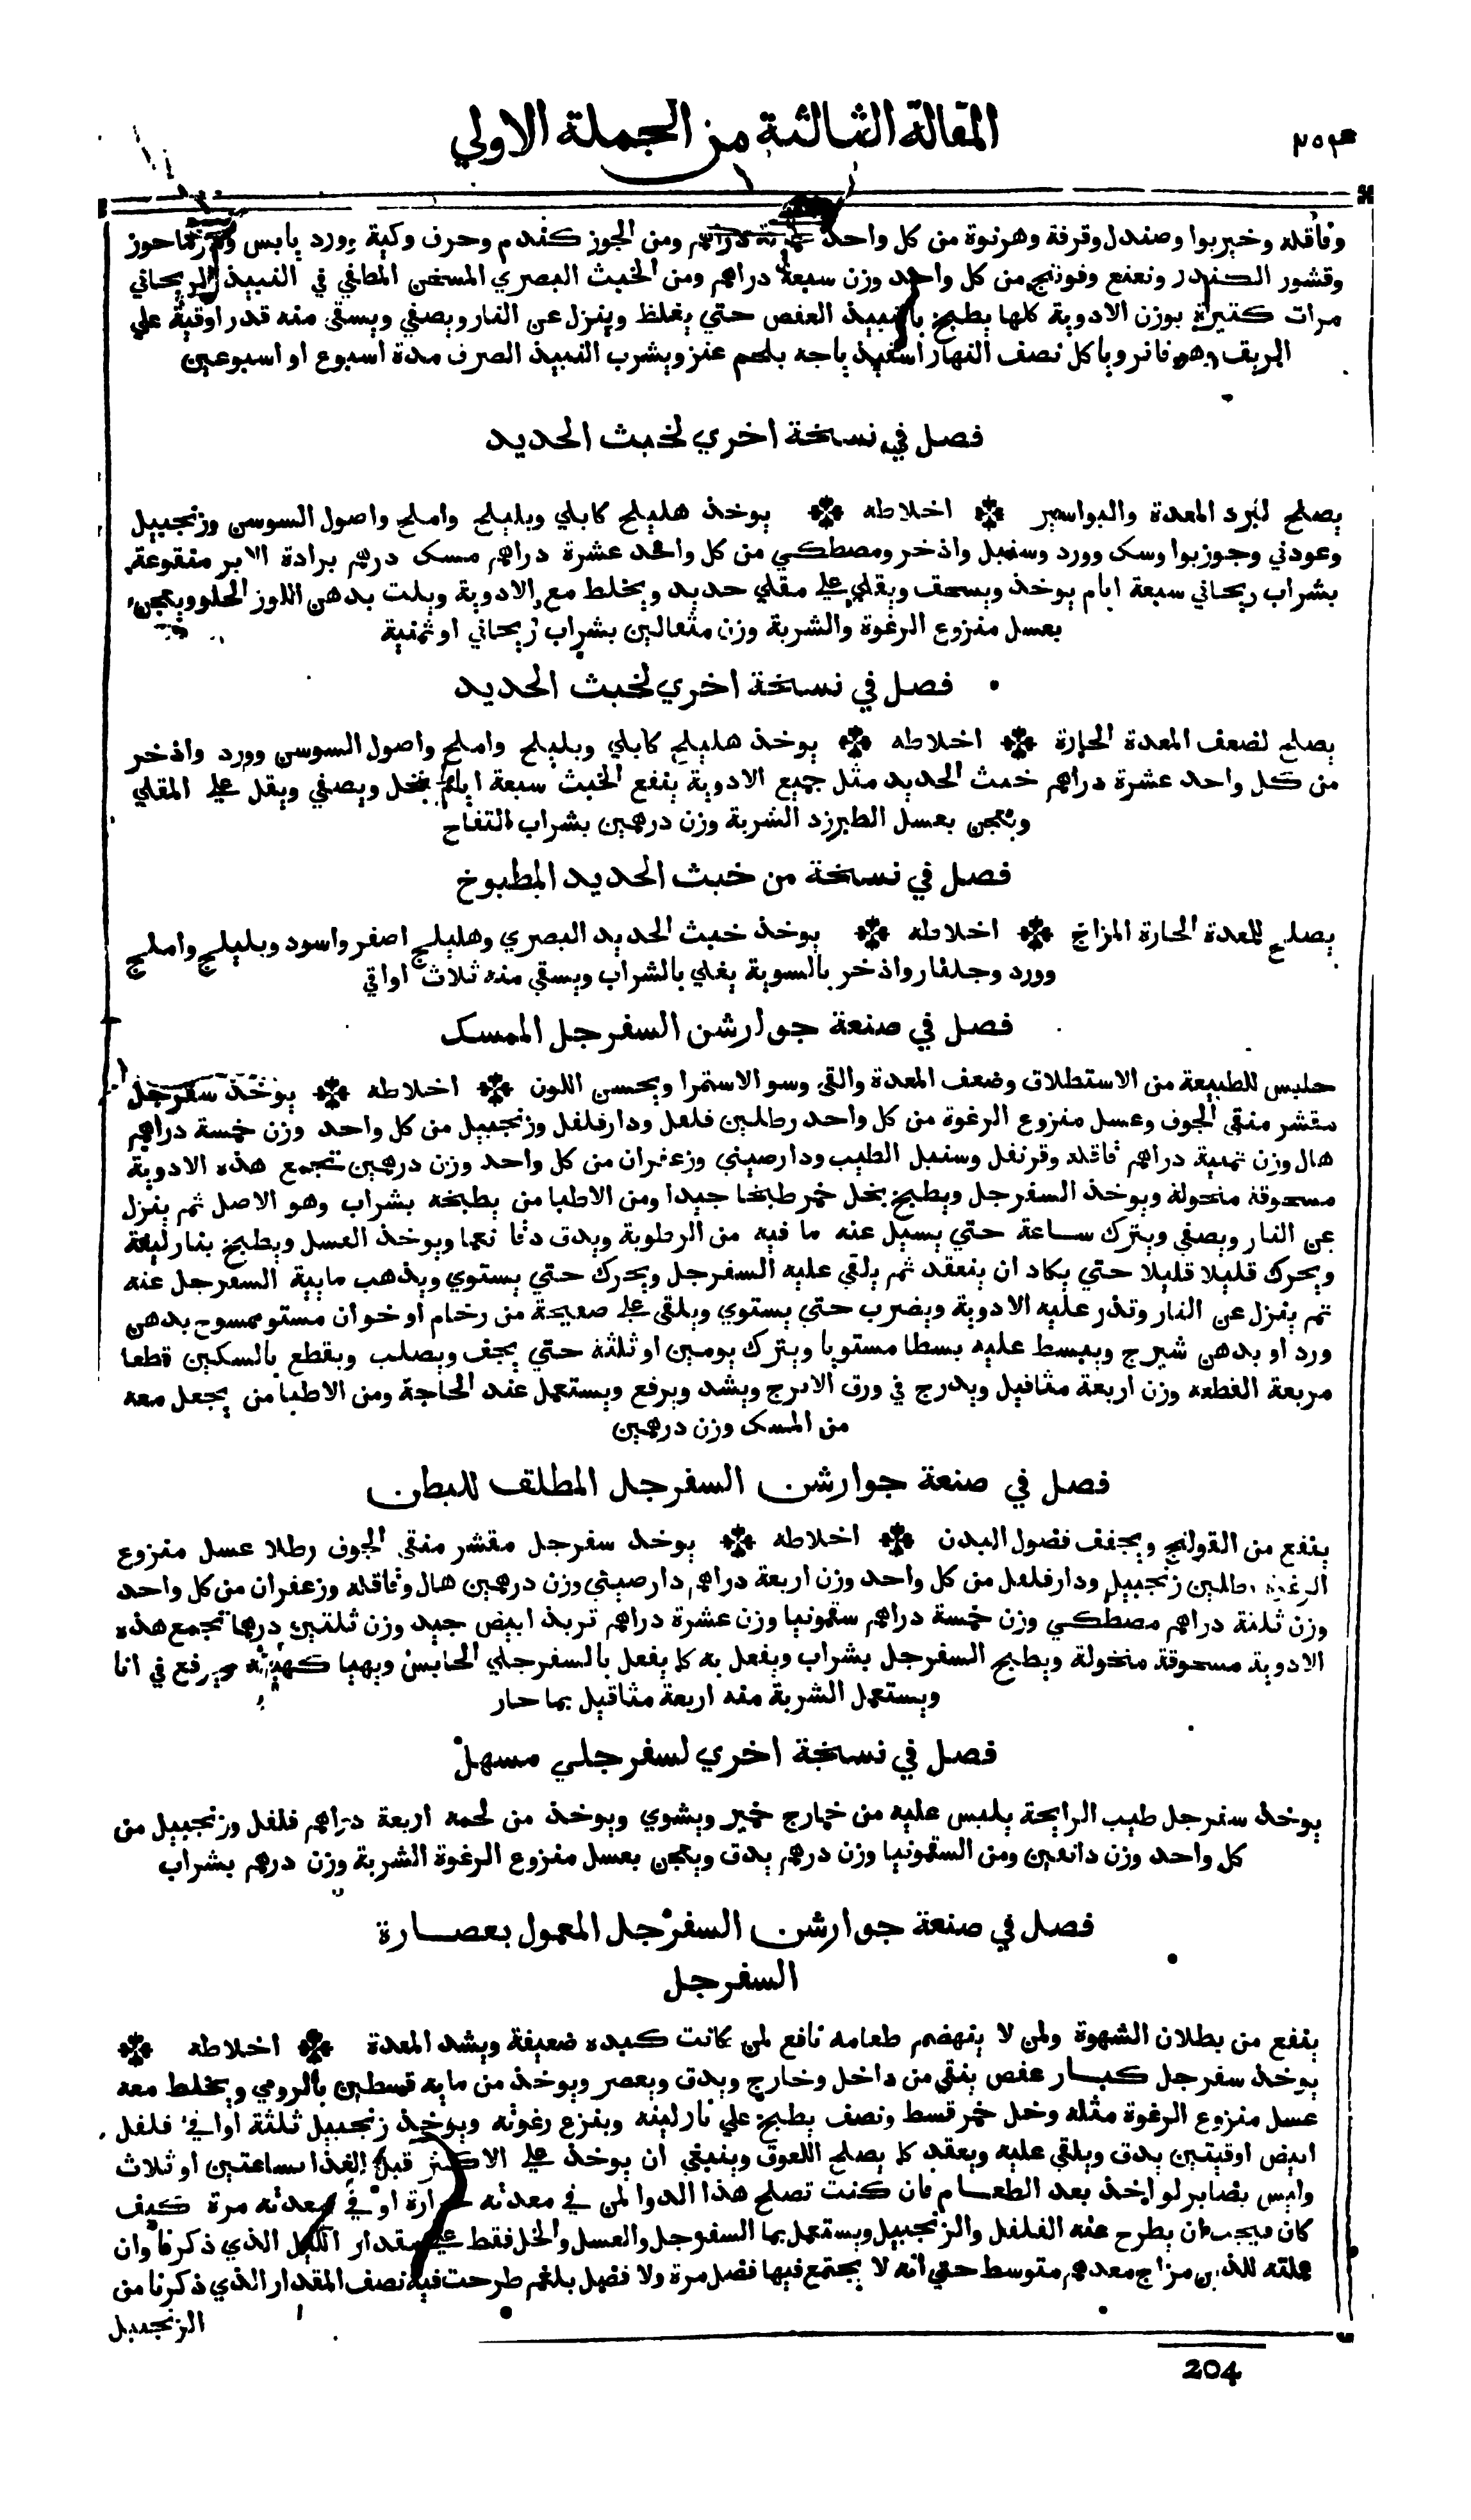 المقالة الثالثة من الجملة الاولي
وقاقله وخيربوا وصندل وقرفة وهرنوة من كل واحد دراهم ومن الجوز كندم وحرف وكية وورد يابس
وقشور الكندر ونعنع وفوتنج من كل واحد وزن سبعة دراهم ومن الخبث البصري المسخن المطفي في النبيذ الريحاني
مرات كثيرة بوزن الادوية كلها يطبخ بالنبيذ العفص حتي يغلظ وينزل عن النار ويصفي ويسقي منه قدر اوقية علي
الريق وهو فاتر وياكل نصف النهار اسفيذ باجه بلحم عنز ويشرب النبيذ الصرف مدة اسبوع او اسبوعين
فصل في نسخة اخري لخبث الحديد
يصلح لبرد المعدة والبواسير ❊ اخلاطه ❊ يوخذ هليلج كابلي وبليلج واملج واصول السوسن وزنجبيل
وعودني وجوزبوا وسك وورد وسنبل واذخر ومصطكي من كل واحد عشرة دراهم مسك درهم برادة الابر منقوعة
بشراب ريحاني سبعة ايام يوخذ ويسحق ويقلي علي مقلي حديد ويخلط مع الادوية ويلت بدهن اللوز الحلو ويعجن
بعسل منزوع الرغوة والشربة وزن مثقالين بشراب ريحاني او ثمنية
فصل في نسخة اخري لخبث الحديد
يصلح لضعف المعدة الحارة ❊ اخلاطه ❊ يوخذ هليلج كابلي وبليلج واملج واصول السوسن وورد واذخر
من كل واحد عشرة دراهم خبث الحديد مثل جميع الادوية ينقع الخبث سبعة ايام بخل ويصفي ويقل علي المقلي
ويعجن بعسل الطبرزد الشربة وزن درهمين بشراب التفاح
فصل في نسخة من خبث الحديد المطبوخ
يصلح للمعدة الحارة المزاج ❊ اخلاطه ❊ يوخذ خبث الحديد البصري وهليلج اصفر واسود وبليلج واملج
وورد وجلنار واذخر بالسوية يغلي بالشراب ويسقي منه ثلاث اواقي
فصل في صنعة جوارشن السفرجل الممسك
حابس للطبيعة من الاستطلاق وضعف المعدة والقي وسو الاستمرا ويحسن اللون ❊ اخلاطه ❊ يوخذ سفرجل
مقشر منقي الجوف وعسل منزوع الرغوة من كل واحد رطلين فلفل ودارفلفل وزنجبيل من كل واحد وزن خمسة دراهم
هال وزن ثمنية دراهم قاقله وقرنفل وسنبل الطيب ودارصيني وزعفران من كل واحد وزن درهمين تجمع هذه الادوية
مسحوقة منخولة ويوخذ السفرجل ويطبخ بخل خمر طبخا جيدا ومن الاطبا من يطبخه بشراب وهو الاصل ثم ينزل
عن النار ويصفي ويترك ساعة حتي يسيل عنه ما فيه من الرطوبة ويدق دقا نعما ويوخذ العسل ويطبخ بنار لينة
ويحرك قليلا قليلا حتي يكاد ان ينعقد ثم يلقي عليه السفرجل ويحرك حتي يستوي ويذهب مايية السفرجل عنه
ثم ينزل عن النار وتذر عليه الادوية ويضرب حتي يستوي ويلقي علي صفيحة من رخام او خوان مستو ممسوح بدهن
ورد او بدهن شيرج ويبسط عليه بسطا مستويا ويترك يومين او ثلثة حتي يجف ويصلب ويقطع بالسكين قطعا
مربعة القطعه وزن اربعة مثاقيل ويدرج في ورق الاترج ويشد ويرفع ويستعمل عند الحاجة ومن الاطبا من يجعل معه
من المسك وزن درهمين
فصل في صنعة جوارشن السفرجل المطلق للبطن
ينفع من القولنج ويجفف فضول البدن ❊ اخلاطه ❊ يوخذ سفرجل مقشر منقي الجوف رطلا عسل منزوع
الرغوة رطلين زنجبيل ودارفلفل من كل واحد وزن اربعة دراهم دارصيني وزن درهمين هال وقاقله وزعفران من كل واحد
وزن ثلثة دراهم مصطكي وزن خمسة دراهم سقمونيا وزن عشرة دراهم تربذ ابيض جيد وزن ثلثين درهما تجمع هذه
الادوية مسحوقة منخولة ويطبخ السفرجل بشراب ويفعل به كما يفعل بالسفرجلي الحابس ويهيا كهيئته ويرفع في انا
ويستعمل الشربة منه اربعة مثاقيل بما حار
فصل في نسخة اخري لسفرجلي مسهل
يوخذ سفرجل طيب الرايحة يلبس عليه من خارج خمير ويشوي ويوخذ من لحمه اربعة دراهم فلفل وزنجبيل من
كل واحد وزن دانقين ومن السقمونيا وزن درهم يدق ويعجن بعسل منزوع الرغوة الشربة وزن درهم بشراب
فصل في صنعة جوارشن السفرجل المعمول بعصارة
السفرجل
ينفع من بطلان الشهوة ولمن لا ينهضم طعامه نافع لمن كانت كبده ضعيفة ويشد المعدة ❊ اخلاطه ❊
يوخذ سفرجل كبار عفص ينقي من داخل وخارج ويدق ويعصر ويوخذ من مايه قسطين بالرومي ويخلط معه
عسل منزوع الرغوة مثله وخل خمر قسط ونصف يطبخ علي نار لينه وينزع رغوته ويوخذ زنجبيل ثلثة اواقي فلفل
ابيض اوقيتين يدق ويلقي عليه ويعقد كما يصلح اللعوق وينبغي ان يوخذ علي الاكثر قبل الغذا بساعتين او ثلاث
وليس بضاير لو اخذ بعد الطعام فان كنت تصلح هذا الدوا لمن في معدته حرارة او في معدته مرة كيف
كان فيجب ان يطرح عنه الفلفل والزنجبيل ويستعمل بما السفرجل والعسل والخل فقط علي مقدار الكيل الذي ذكرنا وان
عملته للذين مزاج معدهم متوسط حتي انه لا يجتمع فيها فضل مرة ولا فضل بلغم طرحت فيه نصف المقدار الذي ذكرنا من
الزنجبيل
204